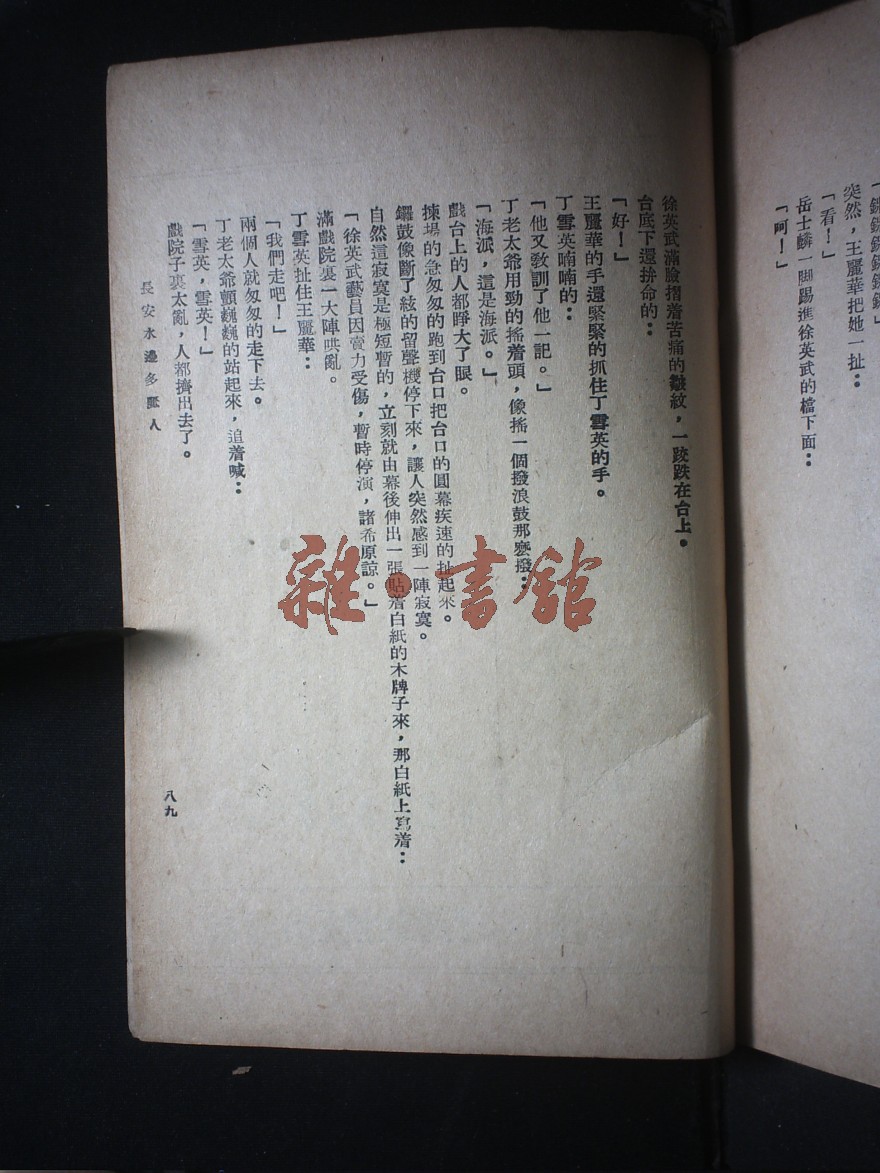 鏘鏘鏘鏘鏘」
突然，王麗華把她一扯：
「看！」
岳士麟一脚踢進徐英武的檔下面：
「呵！」
徐英武滿臉摺着苦痛的皺紋，一跤跌在台上。
台底下還拚命的：
「好！」
王麗華的手還緊緊的抓住丁雪英的手。
丁雪英喃喃的：
「他又教訓了他一記。」
丁老太爺用勁的搖着頭，像搖一個撥浪鼓那麽撥：
「海派，這是海派。」
戲台上的人都睜大了眼。
揀場的急匆匆的跑到台口把台口的圓幕疾速的扯起來。
鑼鼓像斷了絃的留聲機停下來，讓人突然感到一陣寂寞。
自然這寂寞是極短暫的，立刻就由幕後伸出一張貼着白紙的木牌子來，那白紙上寫着：
「徐英武藝員因賣力受傷，暫時停演，諸希原諒。」
滿戲院裏一大陣哄亂。
丁雪英扯住王麗華：
「我們走吧！」
兩個人就匆匆的走下去。
丁老太爺顫巍巍的站起來，追着喊：
「雪英，雪英！」
戲院子裏太亂，人都擠出去了。
長安水邊多麗人
八九
雜·書館